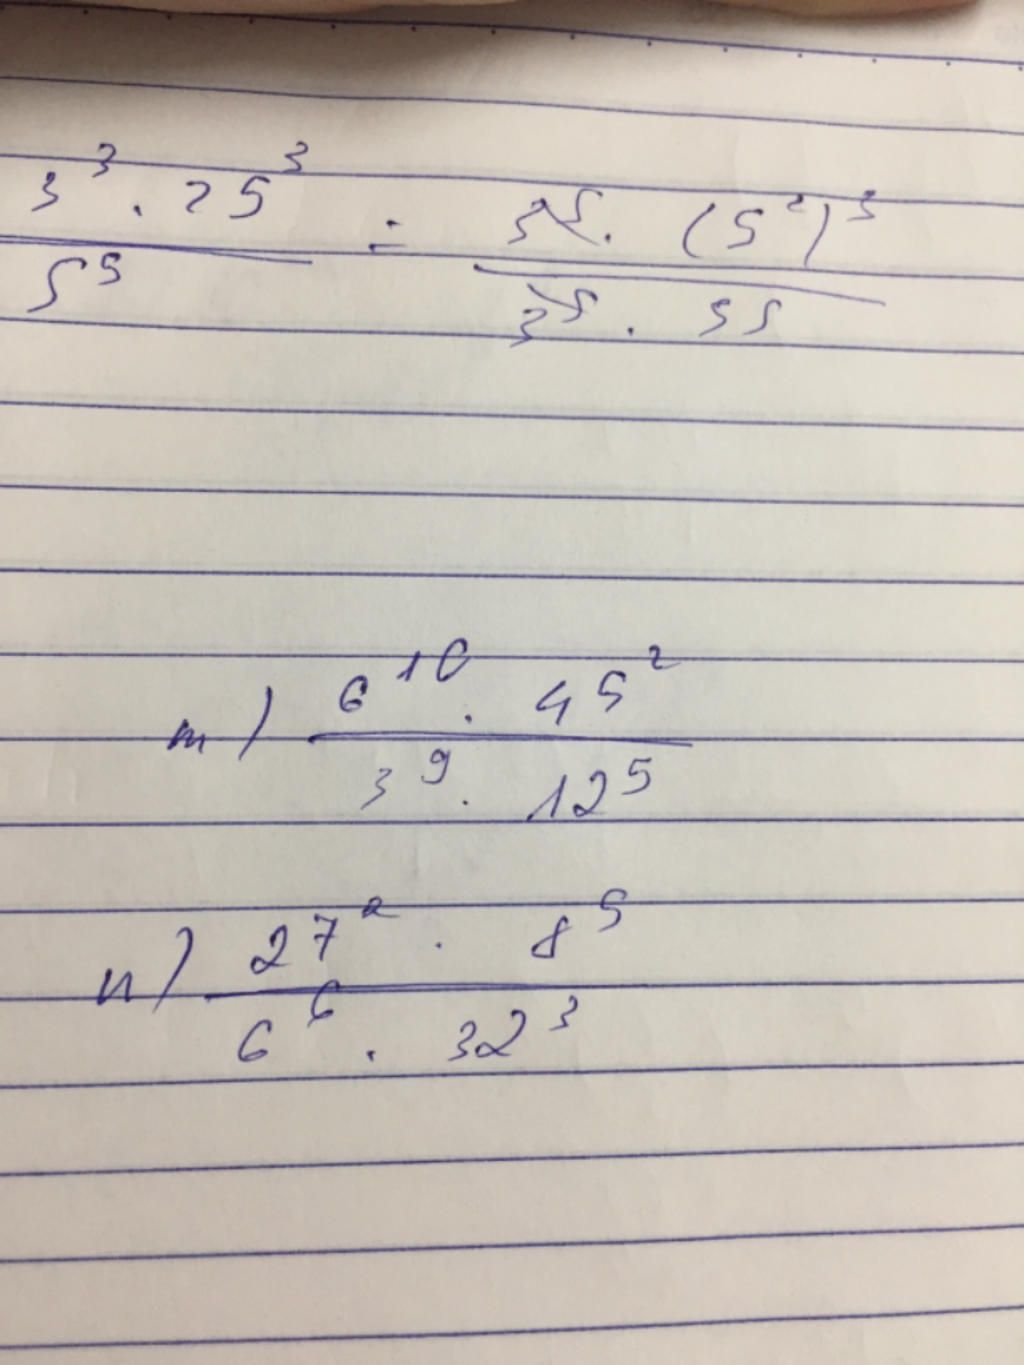 3³ . 25³ = 3⁵ . (5²)³
5⁵ 3⁵ . 55
m) 6¹⁰ . 45²
3⁹ . 12⁵
n) 27² . 8⁵
6⁶ . 32³